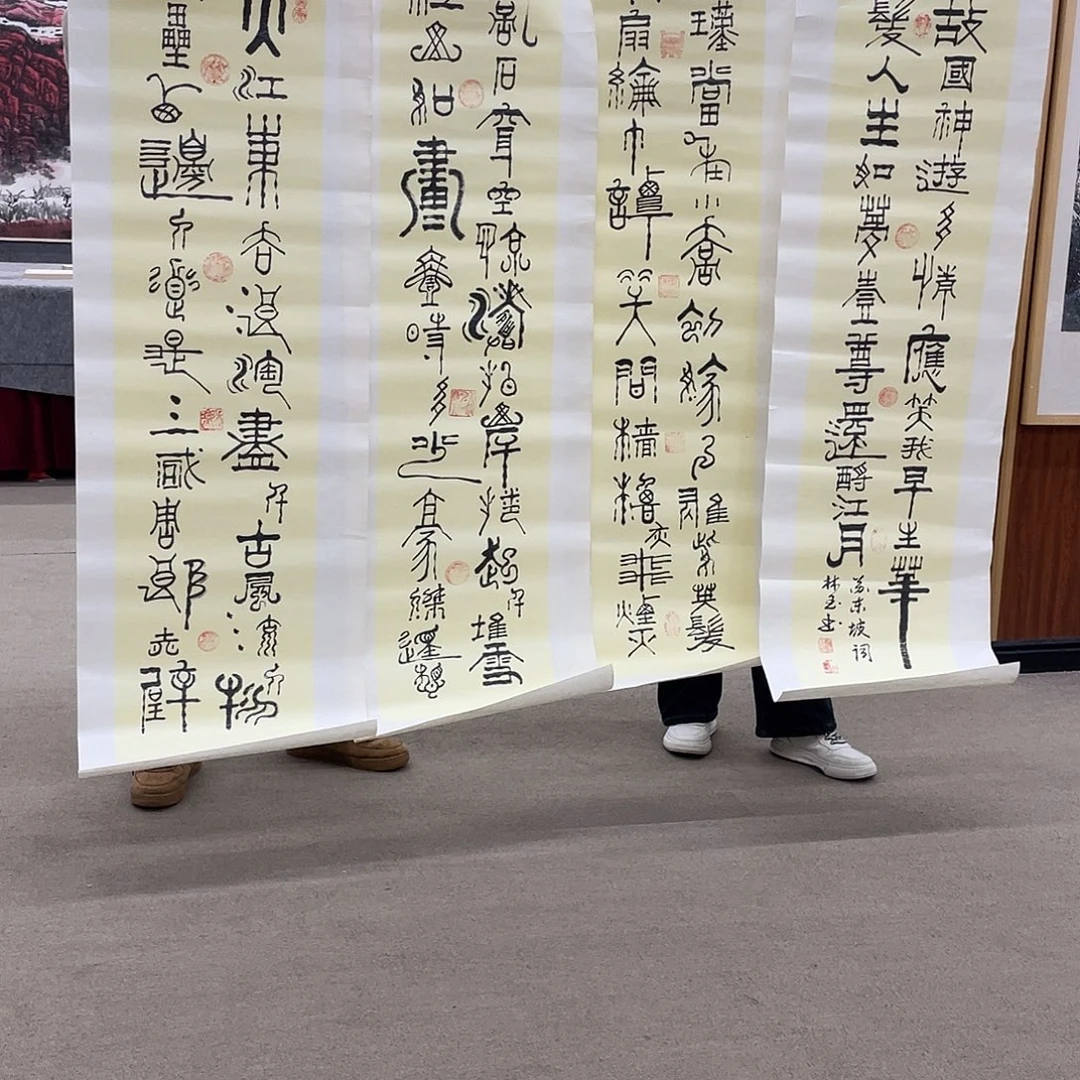 大江東去浪淘盡千古風流人物
壘西邊人道是三國周郎赤壁
亂石穿空驚濤拍岸捲起千堆雪
江山如畫壹時多少豪傑遥想
瑾當年小喬初嫁了雄姿英發
扇綸巾談笑間檣櫓灰飛煙滅
故國神遊多情應笑我早生華
髮人生如夢壹尊還酹江月
蘇東坡詞